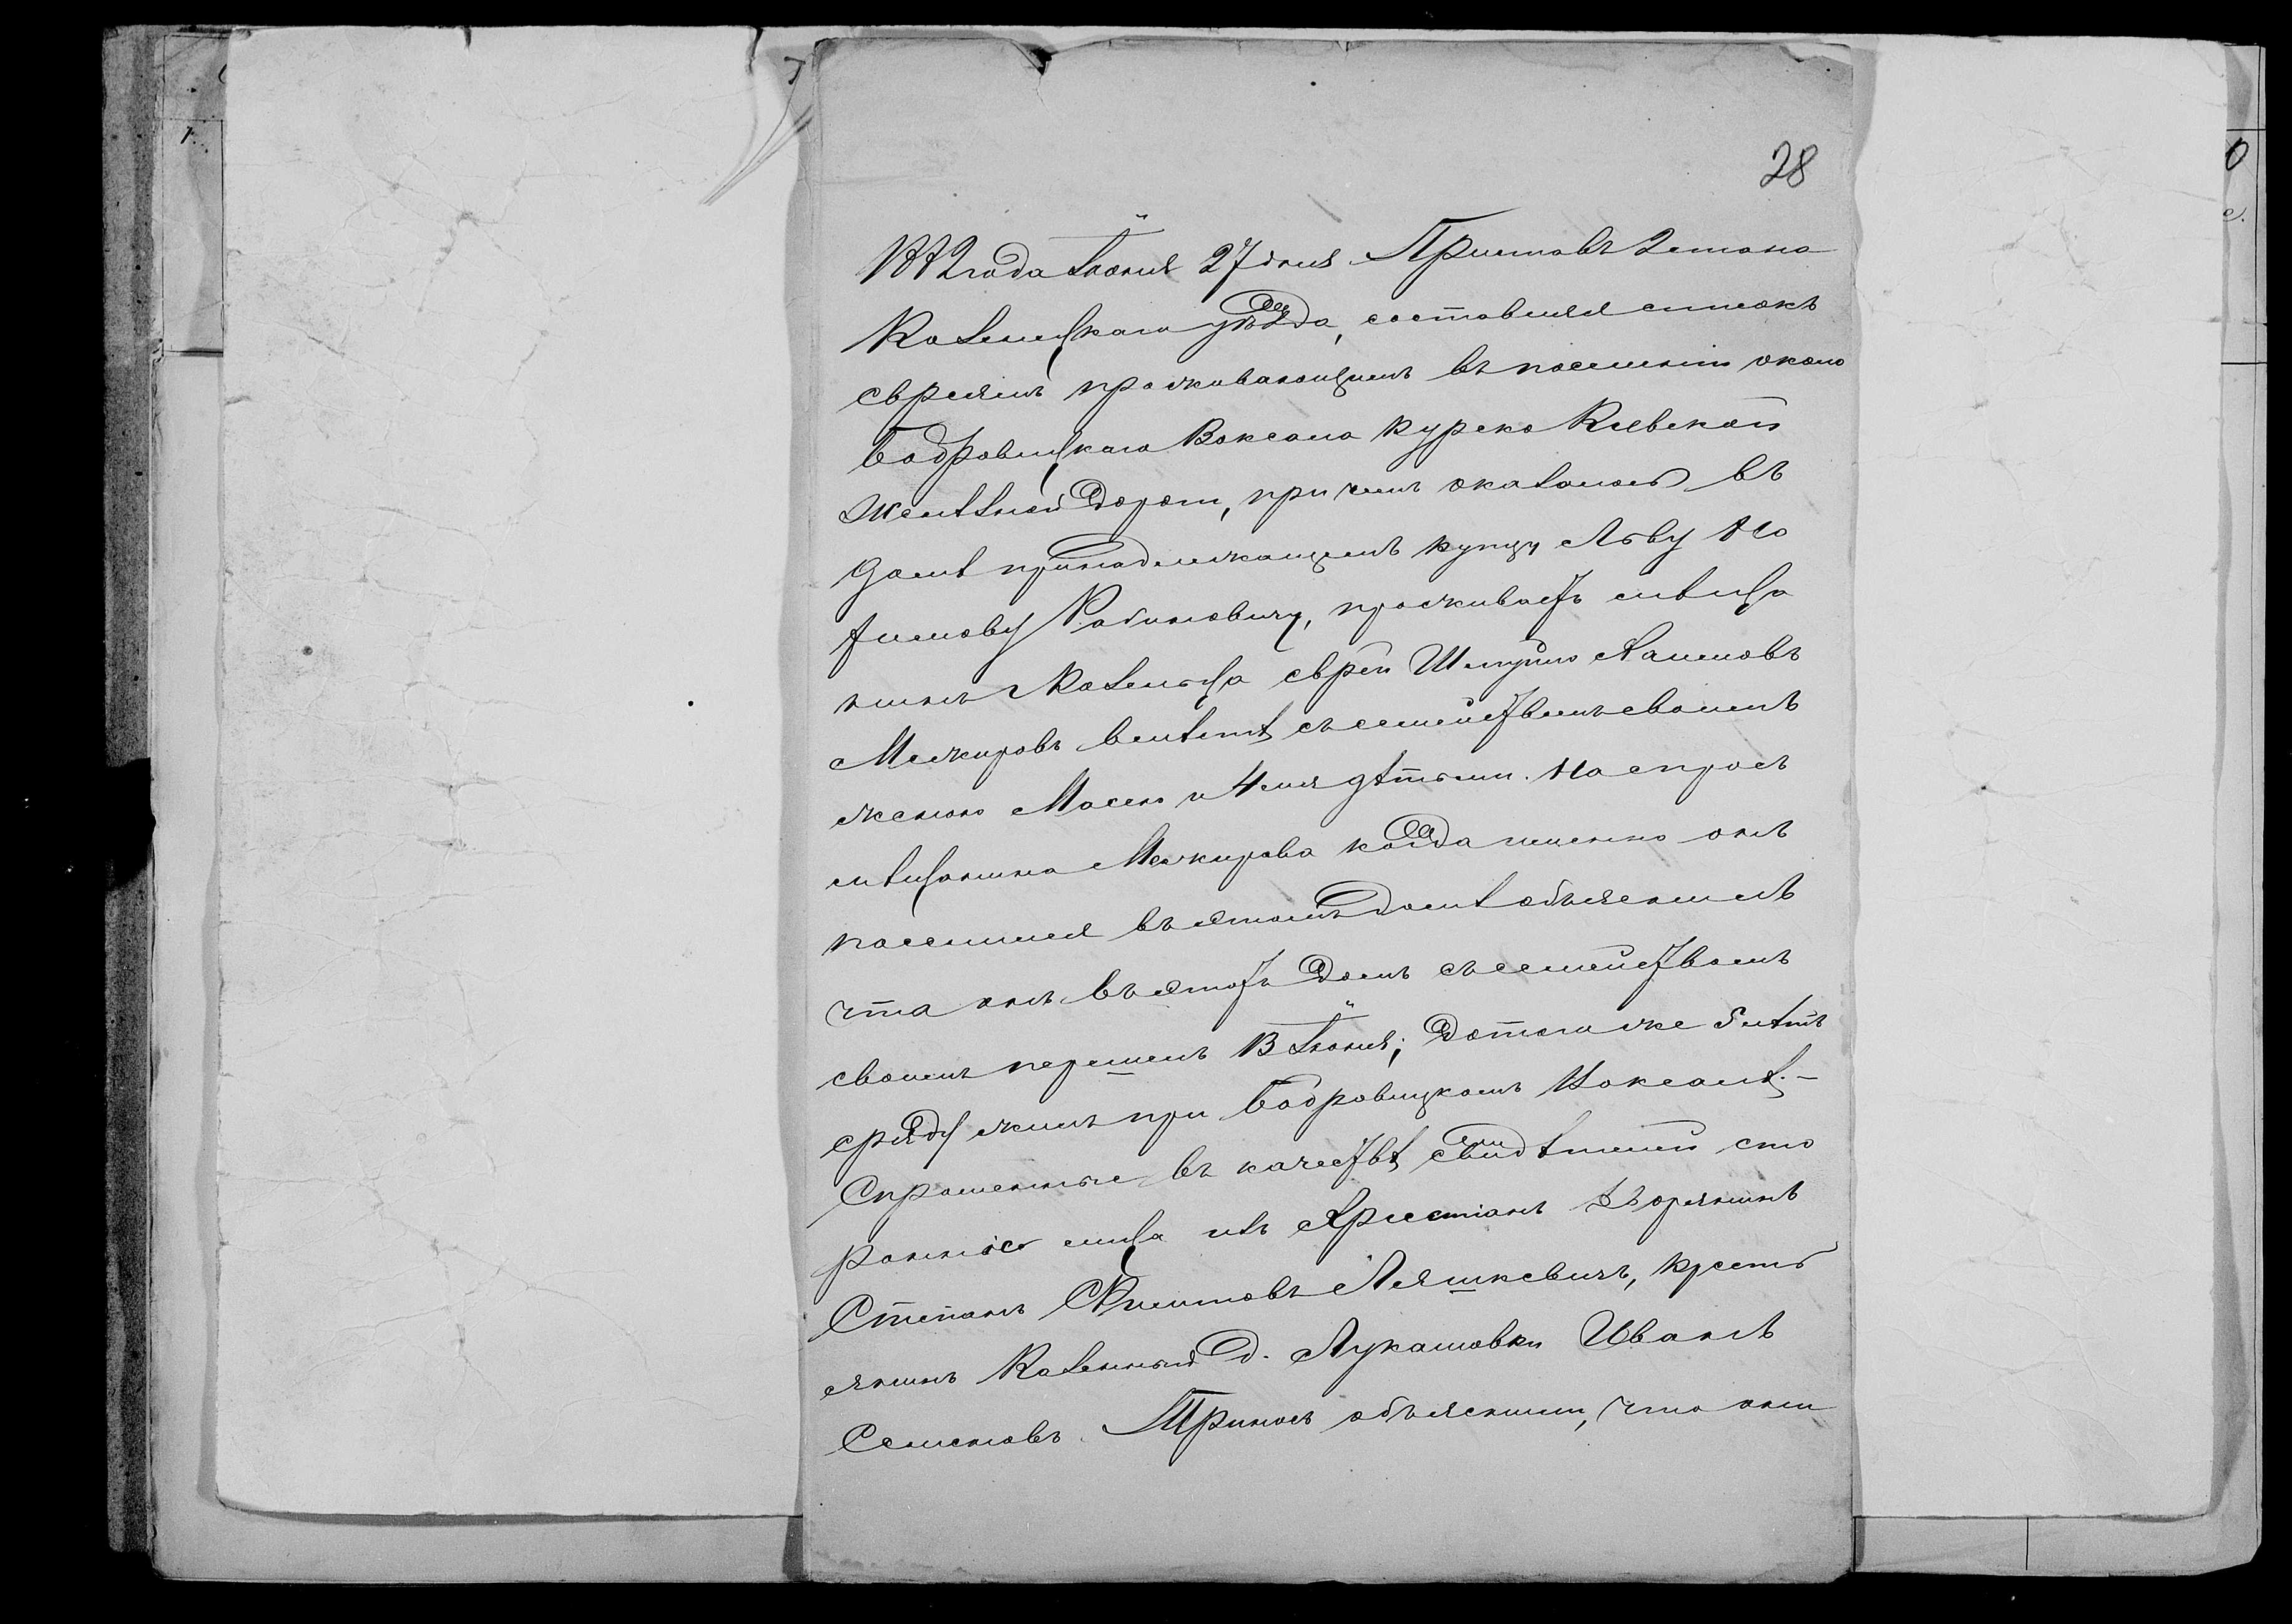 28
1882 года Іюня 27 дня Приставъ 2 стана
Козелецкаго уѣзда, составлялъ списокъ
евреямъ проживающимъ въ поселеніи около
Бобровицкаго Воксала Курско Кіевской
желѣзной дороги, при чемъ оказалось въ
домѣ принадлежащемъ купцу Лѣву
Рабиновичу, проживаетъ мѣща
нинъ г. Козельца еврей Шмуйло
Межировъ вмѣстѣ съ семействомъ своимъ
женою Масею и 4мя дѣтьми. На спросъ
мѣщанина Межирова когда именно онъ
поселился въ этомъ домѣ объяснилъ
что онъ въ этотъ домъ съ семействомъ
своимъ перешелъ 13 Іюня; до того же 5 лѣтъ
сряду жилъ при Бобровицкомъ Воксалѣ.–
Спрошенные въ качествѣ свидѣтелей сто
роннiе лица изъ Христіанъ дворянинъ
Степанъ Ляшкевичъ, кресть
янинъ Казенный д. Лукашовки Иванъ
Семеновъ объяснили, что они
1.
0